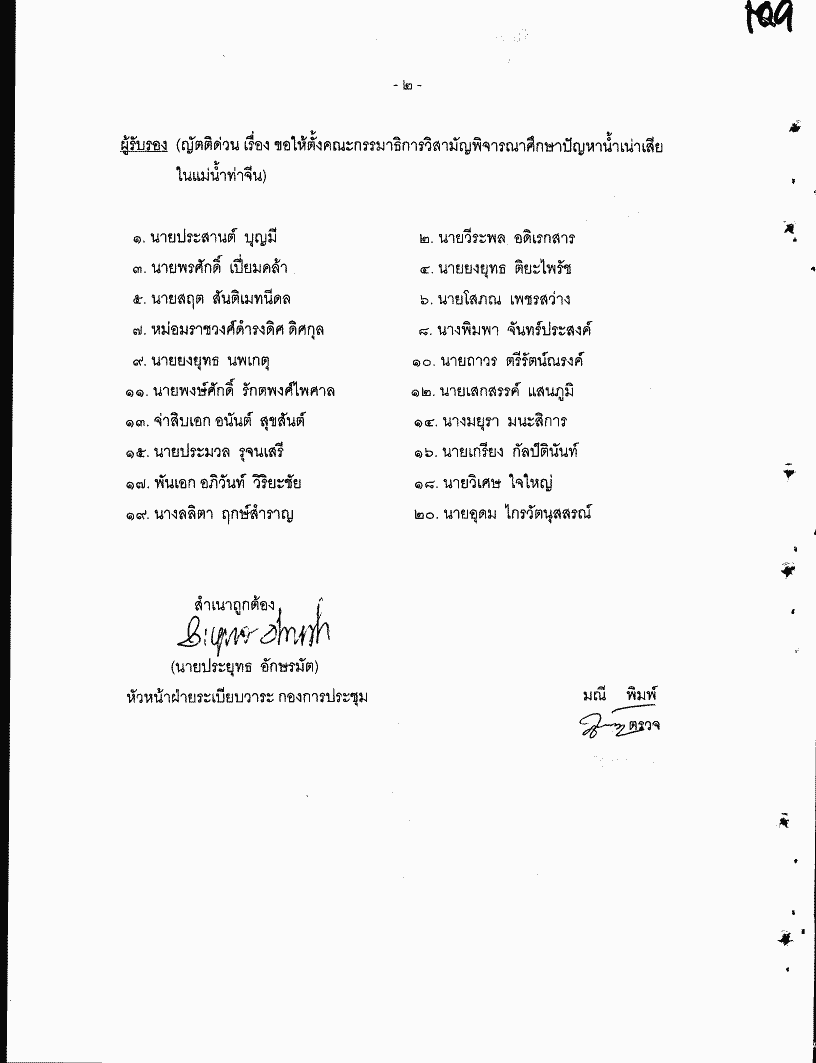 - ๒ -
ผู้รับรอง (ญัตติด่วน เรื่อง ขอให้ตั้งคณะกรรมาธิการวิสามัญพิจารณาศึกษาปัญหาน้ำเน่าเสีย
ในแม่น้ำท่าจีน)
๑. นายประสานต์ บุญมี ๒. นายวีระพล อดิเรกสาร
๓. นายพรศักดิ์ เปี่ยมคล้า ๔. นายยงยุทธ ติยะไพรัช
๕. นายสฤต สันติเมทนีดล ๖. นายโสภณ เพชรสว่าง
๗. หม่อมราชวงศ์ดำรงดิศ ดิศกุล ๘. นางพิมพา จันทร์ประสงค์
๙. นายยงยุทธ นพเกตุ ๑๐. นายถาวร ตรีรัตน์ณรงค์
๑๑. นายพงษ์ศักดิ์ รักตพงศ์ไพศาล ๑๒. นายเสกสรรค์ แสนภูมิ
๑๓. จ่าสิบเอก อนันต์ สุขสันต์ ๑๔. นางมยุรา มนะสิการ
๑๕. นายประมวล รุจนเสรี ๑๖. นายเกรียง กัลป์ตินันท์
๑๗. พันเอก อภิวันท์ วิริยะชัย ๑๘. นายวิเศษ ใจใหญ่
๑๙. นางลลิตา ฤกษ์สำราญ ๒๐. นายอุดม ไกรวัตนุสสรณ์
สำเนาถูกต้อง
(นายประยุทธ อักษรมัต)
หัวหน้าฝ่ายระเบียบวาระ กองการประชุม
มณี พิมพ์
ตรวจ